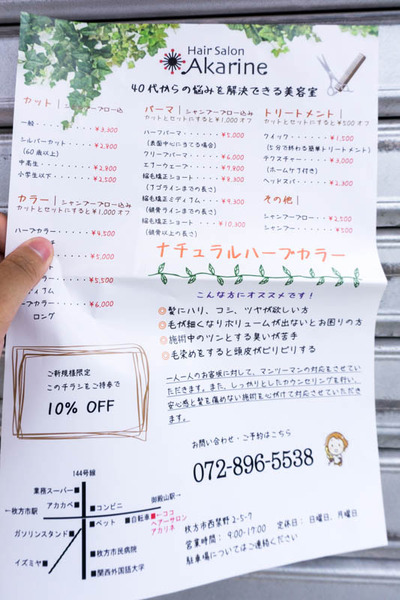 Hair Salon
Akarine
40代からの悩みを解決できる美容室
カット | シャンプーブロー込
一般・・・・・・・¥3,300
シルバーカット・・・・¥2,800
(60歳以上)
中高生・・・・・・¥2,800
小学生以下・・・・・¥2,500
カラー | シャンプーブロー込み
カットとセットにすると¥1,000オフ
ハーブカラー・・・・・¥4,500
¥5,000
カラー・・・・・¥5,500
ィアム
ブカラー・・・・・¥6,000
ロング
パーマ | シャンプーブロー込み
カットとセットにすると¥1,000オフ
ハーフパーマ・・・・・¥5,000
(表面中心にあてる場合)
クリープパーマ・・・・¥6,000
エアウェーブ・・・・・¥7,800
縮毛矯正ショート・・・・¥8,300
(アゴラインまでの長さ)
縮毛矯正ミディアム・・・¥9,300
(鎖骨ラインまでの長さ)
縮毛矯正ショート・・・・¥10,300
(鎖骨以上の長さ)
トリートメント |
カットとセットにすると¥500オフ
クイック・・・・・・¥1,500
(5分で終わる簡単トリートメント)
テクスチャー・・・・・¥3,000
(ホームケア付き)
ヘッドスパ・・・・・¥2,300
その他 |
シャンプーブロー・・・・¥2,500
シャンプー・・・・・¥500
ナチュラルハーブカラー
こんな方にオススメです!
◎髪にハリ、コシ、ツヤが欲しい方
◎毛が細くなりボリュームが出ないとお困りの方
◎施術中のツンとする臭いが苦手
◎毛染めをすると頭皮がピリピリする
一人一人のお客様に対して、マンツーマンの対応をさせてい
ただきます。また、しっかりとしたカウンセリングを行い、
安心感と髪を痛めない施術を心がけて対応させていただき
ます。
ご新規様限定
このチラシをご持参で
10% OFF
お問い合わせ・ご予約はこちら
072-896-5538
144号線
業務スーパー
アカカベ
←枚方市駅
コンビニ
御殿山駅→
ペット
自転車
←ココ
ヘアーサロン
アカリネ
ガソリンスタンド
枚方市民病院
イズミヤ
関西外国語大学
枚方市西禁野2-5-7
営業時間: 9:00-17:00 定休日: 日曜日、月曜日
駐車場についてはご連絡ください